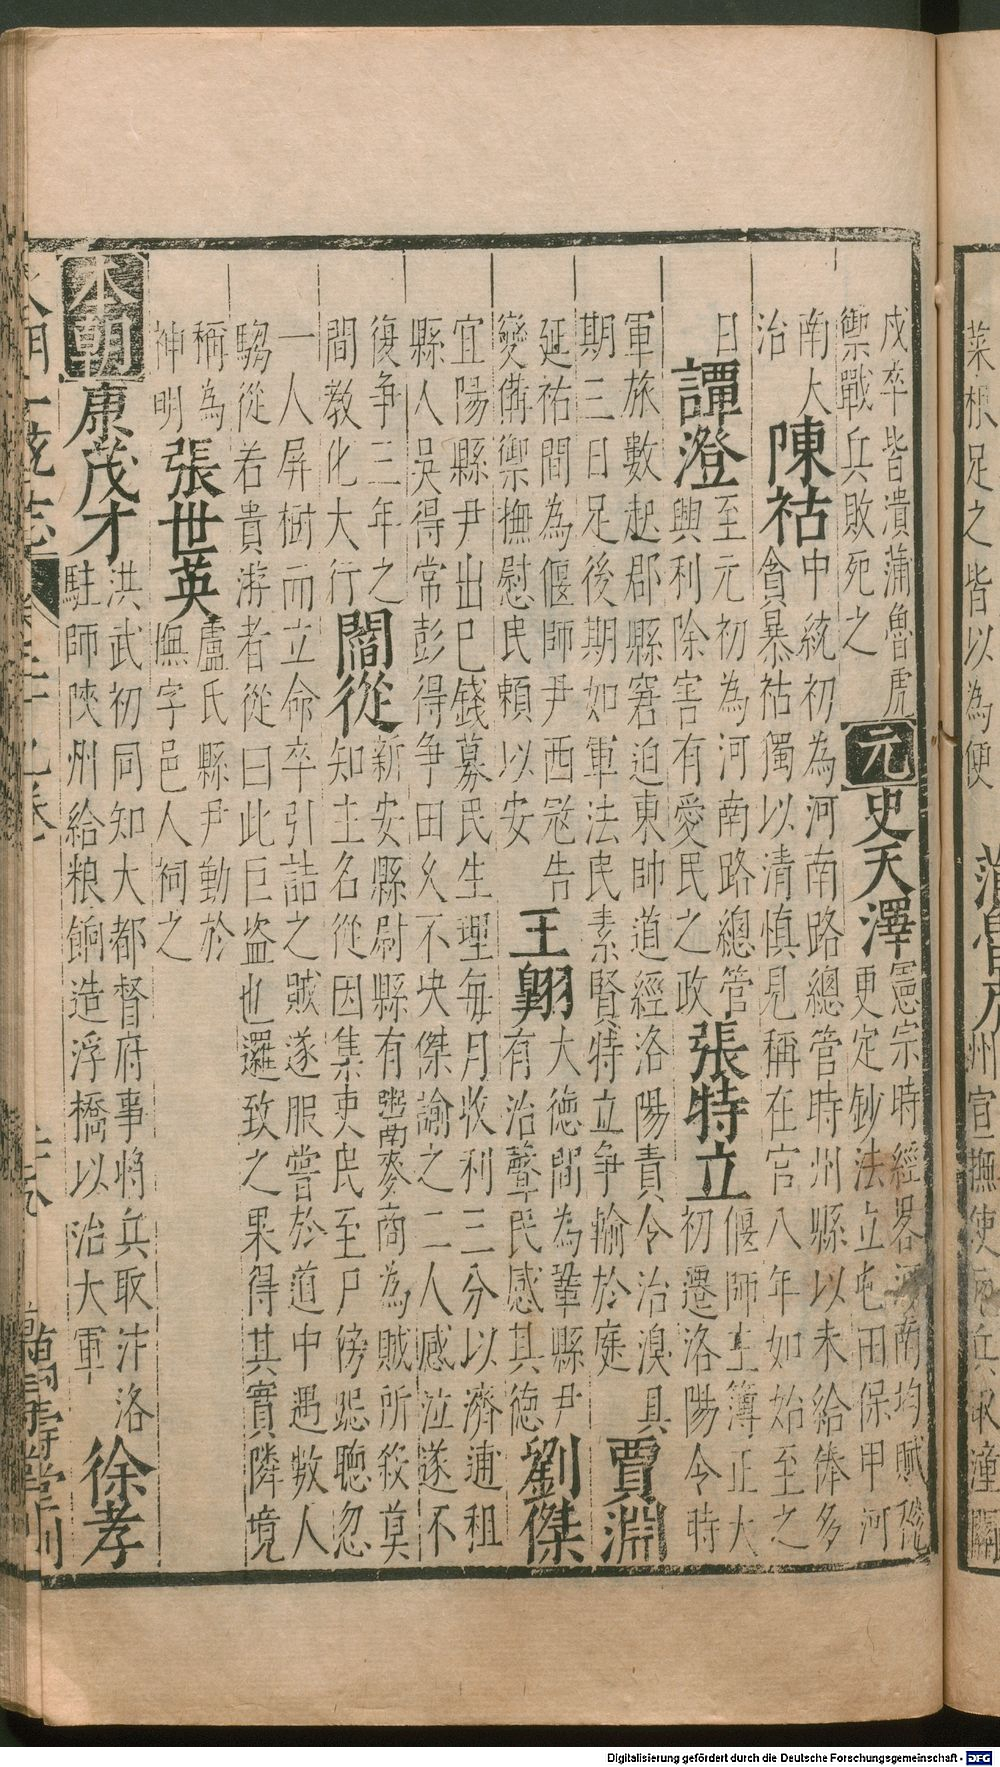 菜根足之皆以為便
州宣撫使
潼關
戍卒皆潰蒲魯虎
禦戰兵敗死之
元 史天澤
憲宗時經畧河南均賦稅
更定鈔法立屯田保甲河
南大
治
陳祜
中統初為河南路總管時州縣以未給俸多
貪暴祜獨以清慎見稱在官八年如始至之
日
譚澄
至元初為河南路總管
興利除害有愛民之政
張特立
偃師主簿正大
初遷洛陽令時
軍旅數起郡縣窘迫東帥道經洛陽責令治溴具
期三日足後期如軍法民素賢特立爭輸於庭
賈淵
延祐間為偃師尹西冦告
變備禦撫慰民頼以安
王翱
大徳間為鞏縣尹
有治聲民感其徳
劉傑
宜陽縣尹出巳錢募民生理每月收利三分以濟逋租
縣人吳得常彭得爭田久不决傑諭之二人感泣遂不
復爭三年之
間教化大行
閻從
新安縣尉縣有粥蕎麥商為賊所殺莫
知主名從因集吏民至尸傍跽聽忽
一人屏樹而立命卒引詰之賊遂服嘗於道中遇數人
騶從若貴游者從曰此巨盗也邏致之果得其實隣境
稱為
神明
張世英
盧氏縣尹勤於
撫字邑人祠之
本朝 康茂才
洪武初同知大都督府事將兵取汴洛
駐師陝州給粮餉造浮橋以治大軍
徐孝
萬壽堂刊
Digitalisierung gefördert durch die Deutsche Forschungsgemeinschaft - DFG